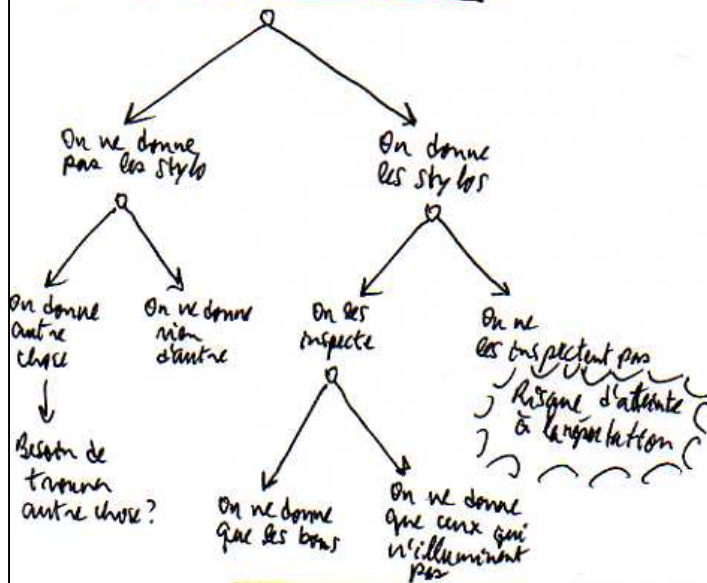 On ne donne
pas les stylo
On donne
les stylos
On donne
autre
chose
On ne donne
rien
d'autre
On les
inspecte
On ne
les inspectent pas
Risque d'atteinte
à la réputation
Besoin de
trouver
autre chose?
On ne donne
que les bons
On ne donne
que ceux qui
n'illuminent
pas